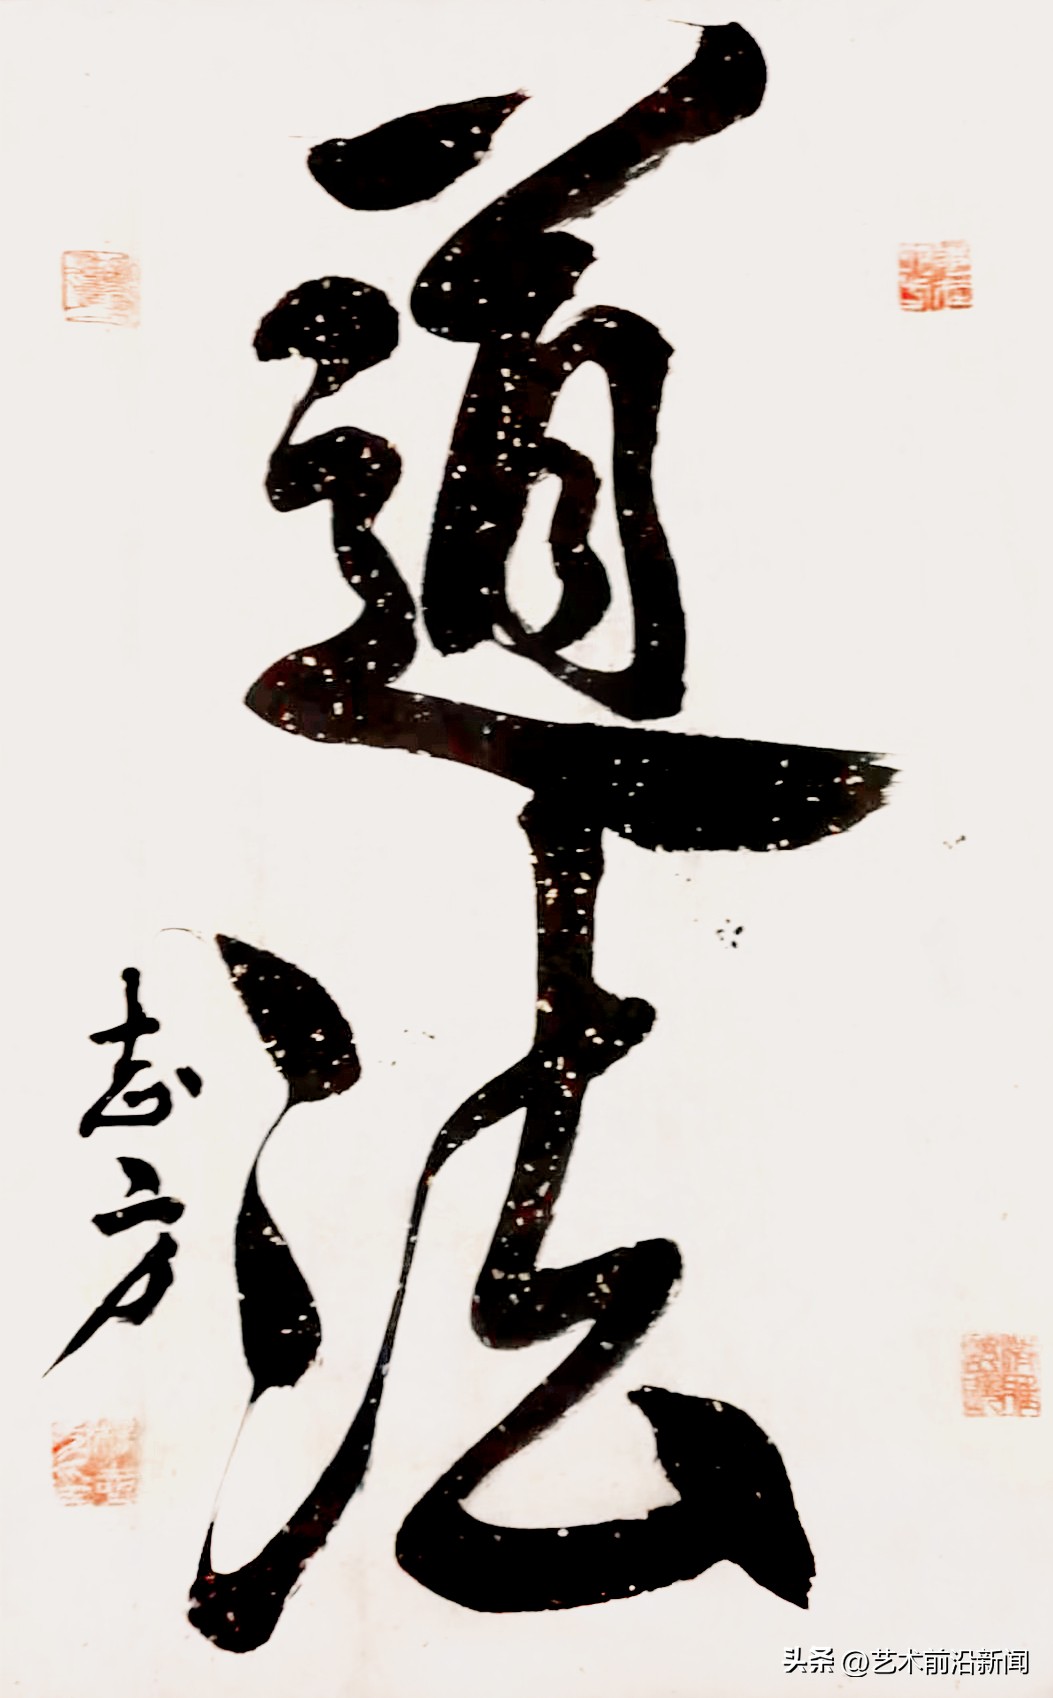 道法
志方
头条 @艺术前沿新闻